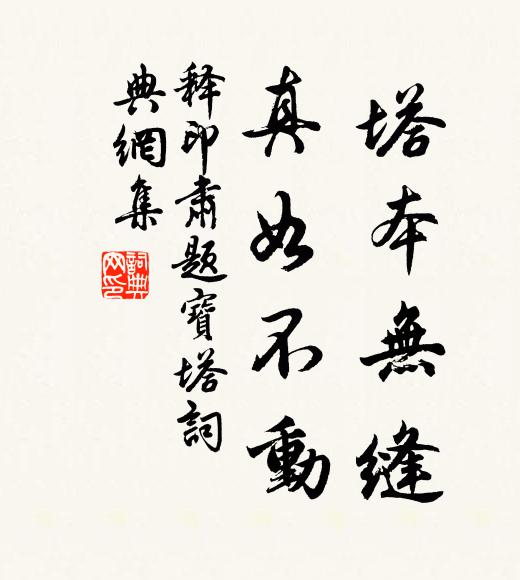 塔本無縫
真如不動
释印肅題寶塔詞
典網集
詞典
网印